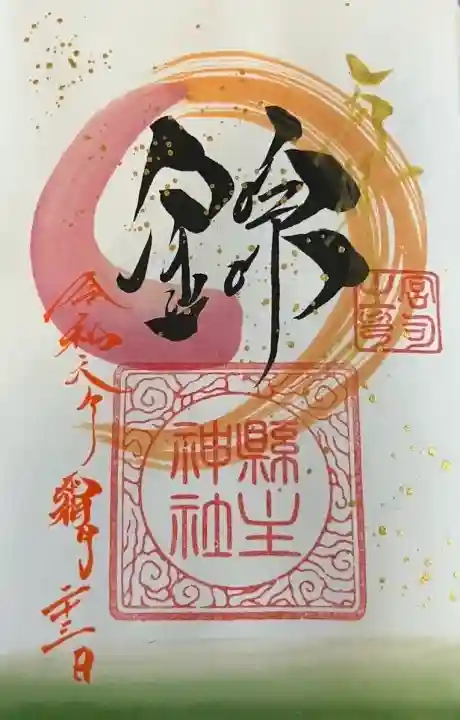 錦
宮司之印
縣主神社
令和 三日